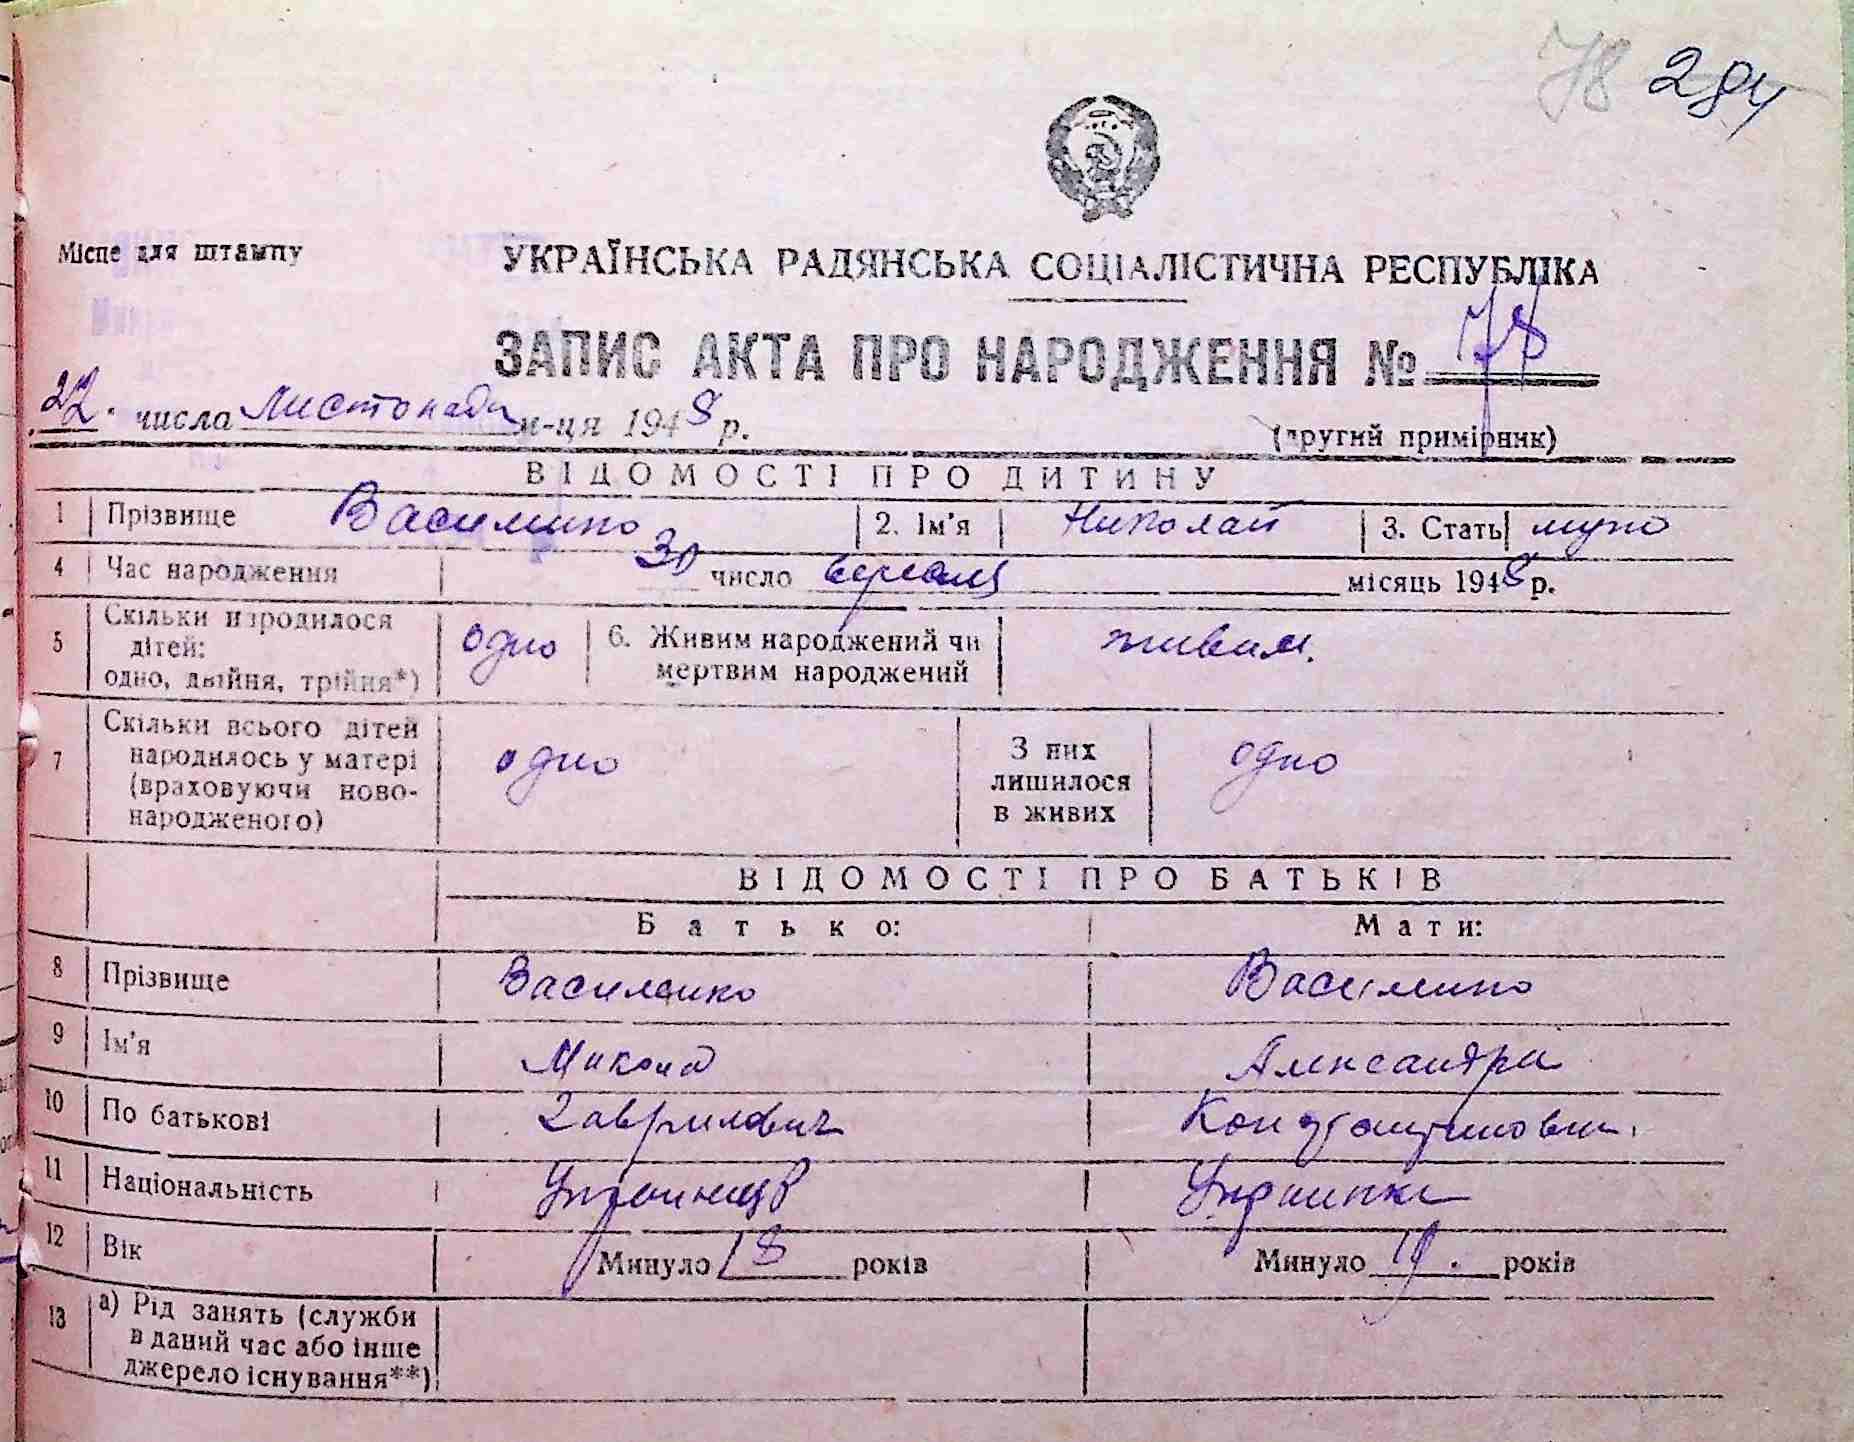 78 284
Місце для штампу
УКРАЇНСЬКА РАДЯНСЬКА СОЦІАЛІСТИЧНА РЕСПУБЛІКА
ЗАПИС АКТА ПРО НАРОДЖЕННЯ № 78
22 числа Листопада м-ця 1948 р.
(другий примірник)
ВІДОМОСТІ ПРО ДИТИНУ
1 Прізвище Василенко 2. Ім'я Николай 3. Стать муж
4 Час народження 30 число березня місяць 1948 р.
5 Скільки народилося дітей: одно, двійня, трійня*) одно 6. Живим народжений чи мертвим народжений живим.
7 Скільки всього дітей народилось у матері (враховуючи ново-народженого) одно З них лишилося в живих одно
ВІДОМОСТІ ПРО БАТЬКІВ
Батько: Мати:
8 Прізвище Василенко Василенко
9 Ім'я Микола Александра
10 По батькові Гаврилович Константиновна
11 Національність Украинец Украинка
12 Вік Минуло 18 років Минуло 19. років
13 а) Рід занять (служби
в даний час або інше
джерело існування**)